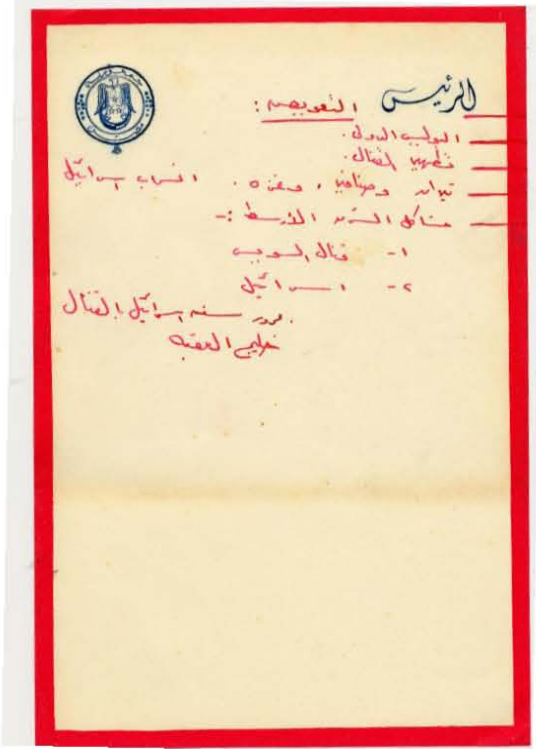 الرئيس
التعويض :
البوليس الدولى .
تطهير القنال .
تيران وصنافير ، وغزه . انسحاب اسرائيل
مشاكل الشرق الأوسط :-
١- قنال السويس
٢- اسرائيل
مرور سفن اسرائيل القنال
خليج العقبه